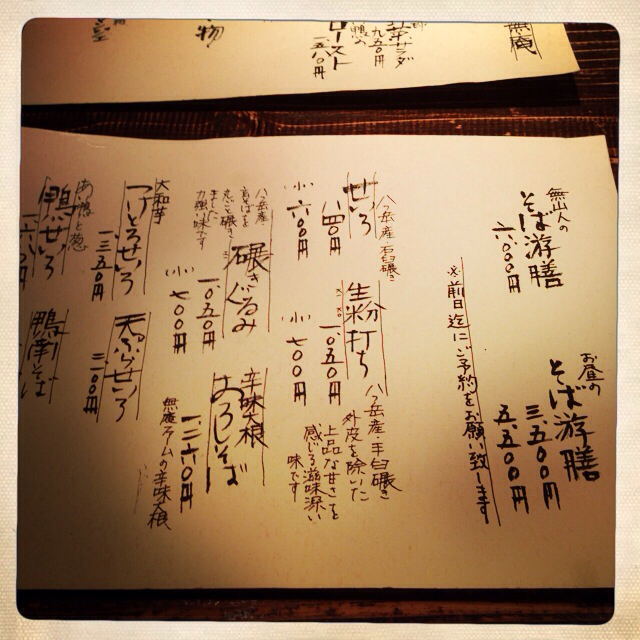 無庵
九五〇円
ロースト
一五八〇円
物
無山人の
そば游膳
六、〇〇〇円
お昼の
そば游膳
三、五〇〇円
五、五〇〇円
※前日迄にご予約をお願い致します
八ヶ岳産 石臼碾き
せいろ
八四〇円
(小) 六〇〇円
八ヶ岳産・手臼碾き
外皮を除いた
上品な甘さを
感じる滋味深い
味です
生粉打ち
一、〇五〇円
(小) 七〇〇円
八ヶ岳産
玄そばを
丸ごと碾き
ました
力強い味です
碾きぐるみ
一、〇五〇円
(小) 七〇〇円
辛味大根
おろしそば
一、二六〇円
無庵ファームの辛味大根
大和芋
つけとろせいろ
一、三五〇円
天ぷらせいろ
二、一〇〇円
鴨せいろ
鴨南そば